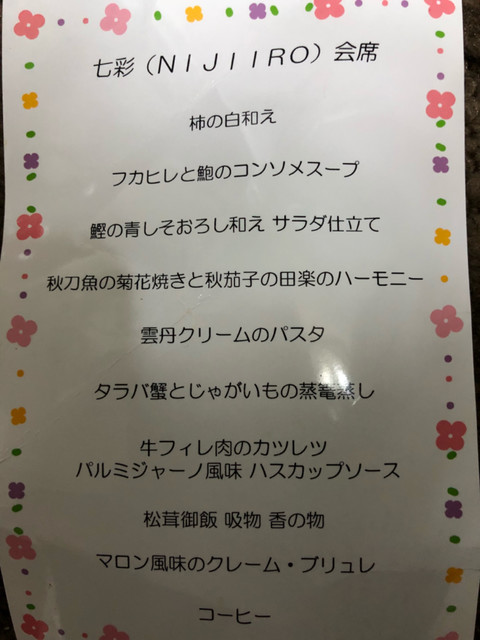 七彩（ＮＩＪＩＩＲＯ）会席
柿の白和え
フカヒレと鮑のコンソメスープ
鰹の青しそおろし和え サラダ仕立て
秋刀魚の菊花焼きと秋茄子の田楽のハーモニー
雲丹クリームのパスタ
タラバ蟹とじゃがいもの蒸篭蒸し
牛フィレ肉のカツレツ
パルミジャーノ風味 ハスカップソース
松茸御飯 吸物 香の物
マロン風味のクレーム・ブリュレ
コーヒー